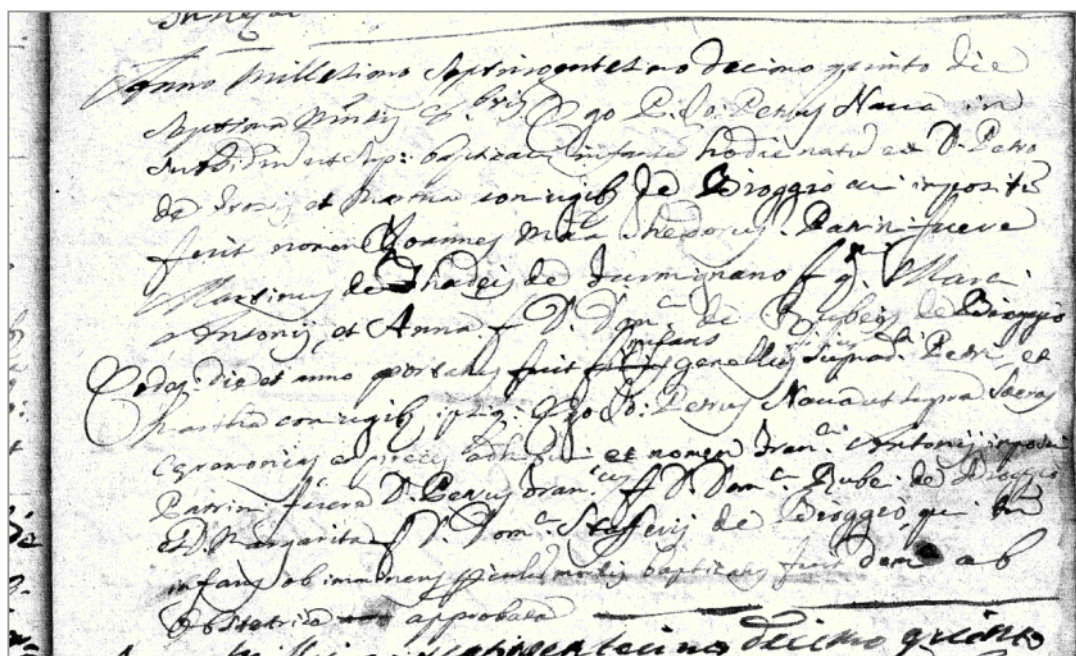 Anno Millesimo Septingentesimo decimo quinto die
Septima Mensis 8.bris Ego P. Jo: Petrus Nava in
ut sup: baptizavi infante hodie natu ex D. Petro
de et Martha coniugib de Bioggio cui impositu
fuit nomen Joannes Mar. Thedorus. Patrini fuere
Martinus de Thadeis de Jurmignano f q. Marci
Antonij, et Anna f D. Dom.ci de Rubeis de Bioggio
Eodem die et anno portatus fuit infans gemellus suprad. Petri et
Martha coniugib, Ego Jo: Petrus Nava ut supra Sacras
Ceremonias et preces adhibui et nomen Fran.ci Antonij imposui
Patrini fuere D. Petrus Fran.cus f D. Dom.ci Rube. de Bioggio
et D. Margarita f D. Dom.ci de Bioggio, qui
infans ob imminens mortis baptizatus fuit domi ab
Obstetrice approbata
decimo quinto